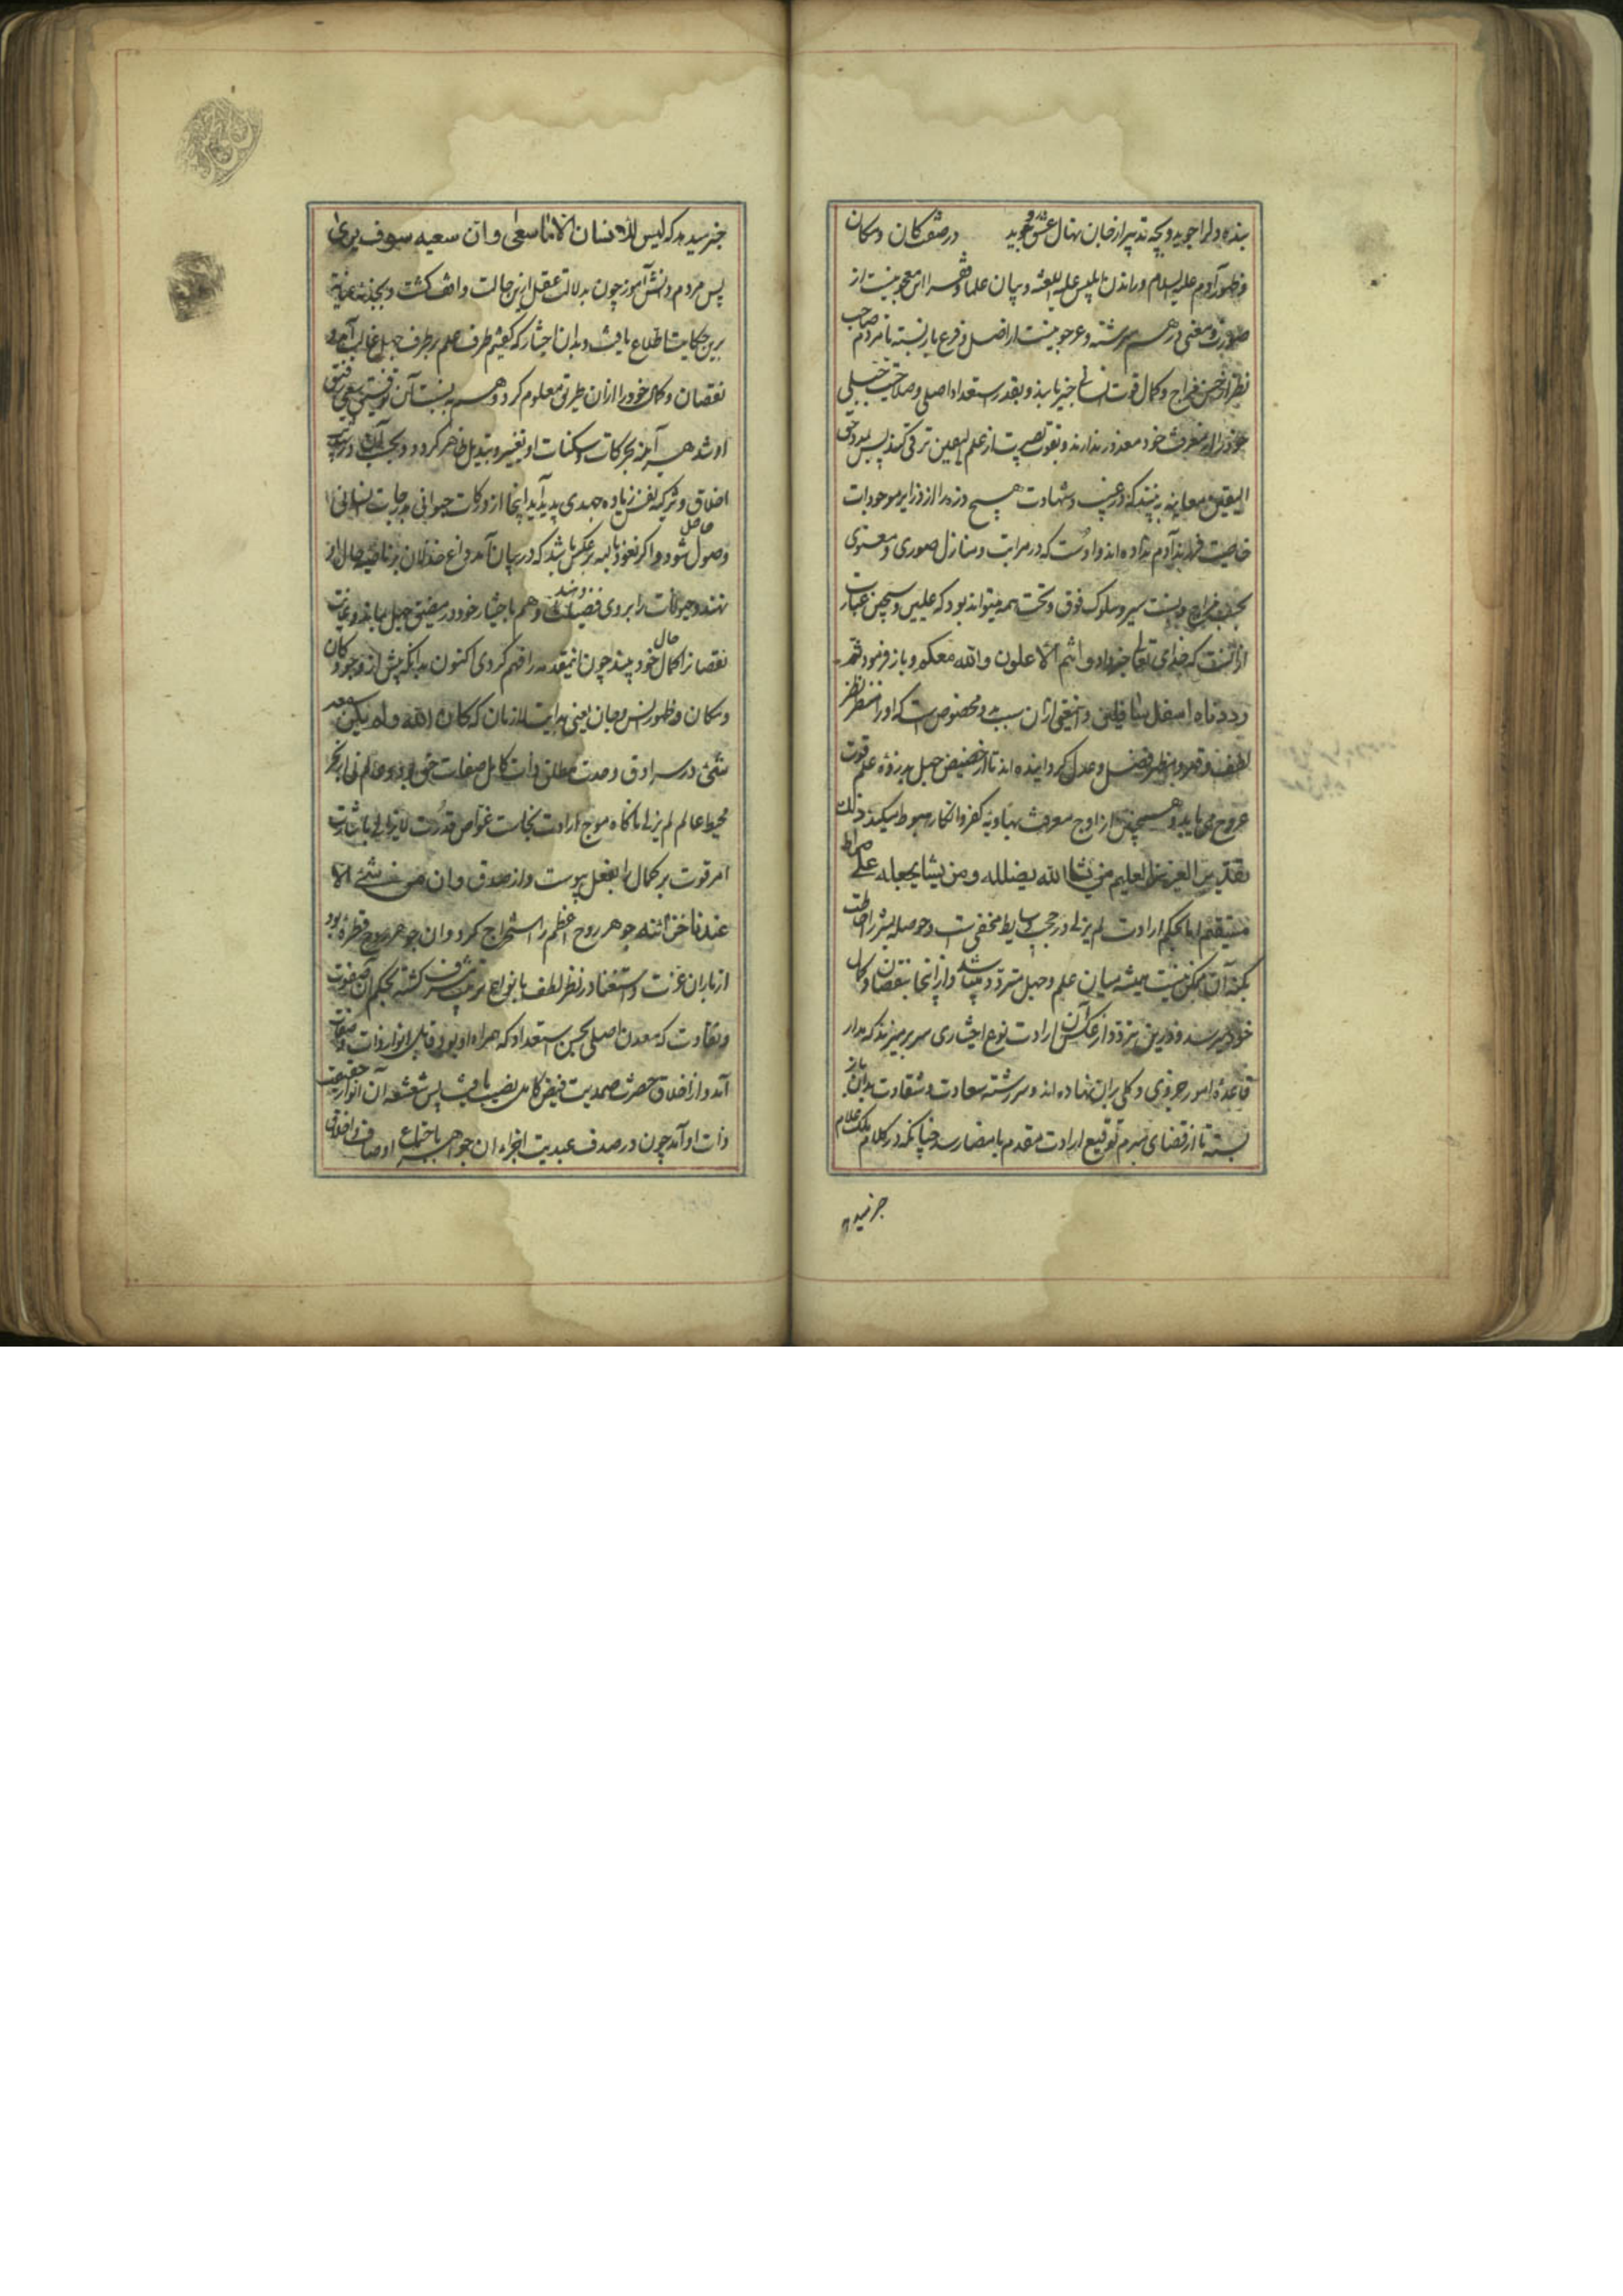 بنده دلرا جوید و بچه تدبیر از خان نهال عشق روید در صفت کان و مکان
و ظهور آدم علیه السلام و راندن ابلیس علیه اللعنه و بیان علما و فقرا این معجونیست از
صورت و معنی در هم سرشته و عرجونیست از اصل و فرع باز بسته تا مردم صاحب
نظر از حسن مزاج و کمال قوت انسانی خبر یابند و بقدر استعداد اصلی و صلاحیت جبلی
خود را از معرفت خود معذور ندارند و بقوت بصیرت از علم الیقین ترقی کنند پس بدیده حق
الیقین معاینه به بینند که در غیب و شهادت هیچ ذره را از ذرایر موجودات
خاصیت فرزند آدم نداده اند و اوست که در مراتب و منازل صوری و معنوی
بحسب مزاج و نسبت سیر و سلوک فوق و تحت همه میتواند بود که علیین و سجین عبارت
از آنست که خدای تعالی خبر داد و انتم الاعلون والله معکم و باز فرمود ثم
رددناه اسفل سافلین و این معنی از آن سبب بدو مخصوص است که او را منظر نظر
لطف و قهر و مظهر فضل و عدل گردانیده اند تا از حضیض جهل بذروه علم قوت
عروج می یابد و همچنین از اوج معرفت بهاویه کفر و انکار هبوط میکند ذلک
تقدیر العزیز العلیم من یشا الله یضلله و من یشا یجعله علی صراط
مستقیم اما بحکم ارادت لم یزلی در حجب وسایط مخفی است و حوصله بشر را احاطت
بکنه آن ممکن نیست همیشه میان علم و جهل متردد میباشد و از اینجا بنقصان و کمال
خود میرسد و درین تردد از عکس آن ارادت نوع اختیاری سر بر میزند که مدار
قاعده امور جزوی و کلی بران نهاده اند و سررشته سعادت و شقاوت بدان باز
بسته تا از قضای مبرم توقیع ارادت مقدم بامضا رسد چنانکه در کلام ملک علام
خبر میدهد
خبر میدهد که لیس للانسان الا ما سعی وان سعیه سوف یری
پس مردم دانش آموز چون بدلالت عقل ازین حالت واقف گشت و بجذبه عنایت
برین حکایت اطلاع یافت و بدان اختیار که گفتیم طرف علم بر طرف جهل غالب آمد و
نقصان و کمال خود را از ان طریق معلوم کرد و هم به نسبت آن توفیق سعی رفیق
او شد هر آینه بحرکات و سکنات او تغییر و تبدیل ظاهر گردد و بحسب آن در تهذیب
اخلاق و تزکیه نفس زیاده جهدی پدید آید اینجا از درکات حیوانی بدرجات انسانی
وصول حاصل شود و اگر نعوذ بالله برعکس باشد که در بیان آمد داغ خذلان بر ناصیه حال او
نهند و حیوانات را بروی فضیلت دهند و هم باختیار خود در مضیق جهل بماند و غایت
نقصان را کمال حال خود بیند چون این مقدمه را فهم کردی اکنون بدانکه پیش از وجود کان
و مکان و ظهور انس و جان یعنی بدایت لازمان که کان الله ولم یکن معه
شیئ در سرادق وحدت مطلق ذات کامل صفات حق بود و عالم نی از بحر
محیط عالم لم یزلی ناگاه موج ارادت بخاست غواص قدرت لایزالی باشارت
امر قوت بر کمال را بفعل پیوست و از صدق وان من شیئ الا
عندنا خزائنه جوهر روح اعظم را استخراج کرد و ان جوهر روح قطره بود
از باران عزت و استغنا در نظر لطف بانواع تربیت مشرف گشته بحکم آن صفوت
و نقاوت که معدن اصلی بحسن استعداد که همراه او بود قابل انوار ذات و صفات
آمد و از اخلاق حضرت صمدیت فیض کامل نصیب یافت پس شعشعه آن انوار حقیقت
ذات او آمد چون در صدف عبدیت اجزاء ان جواهر باجتماع اوصاف و اخلاق